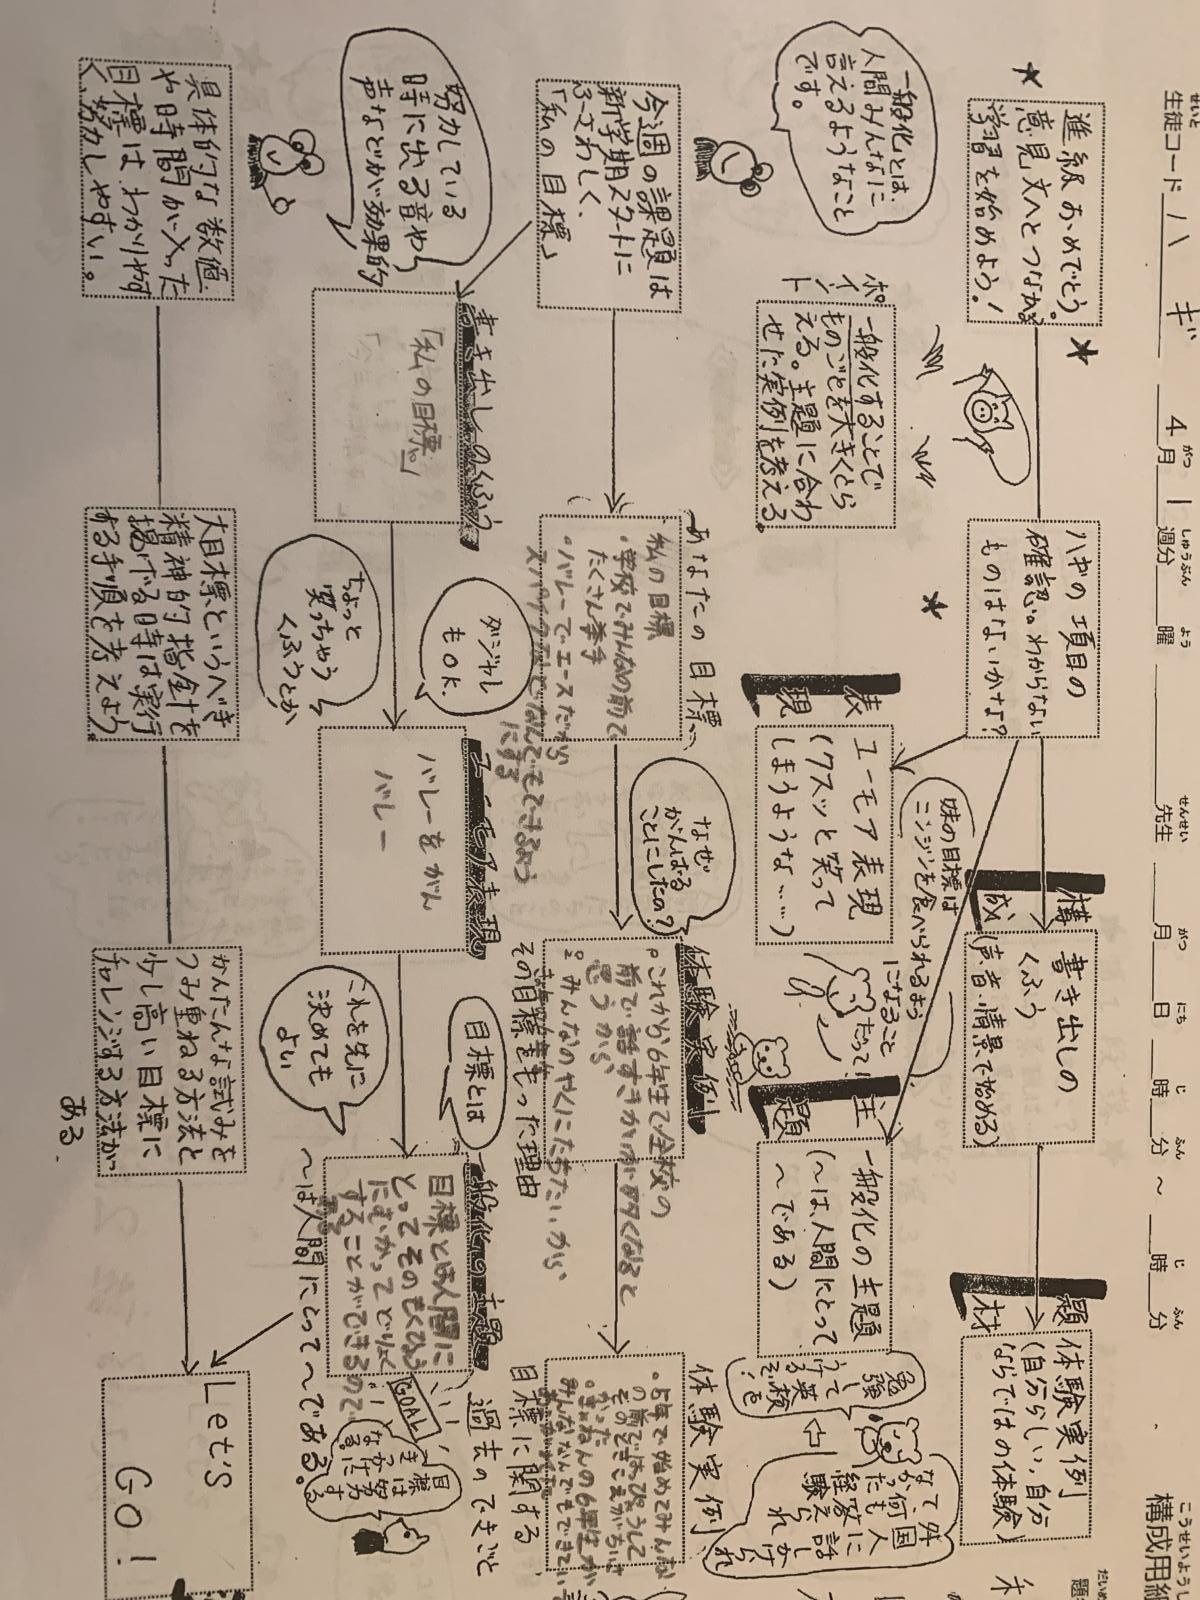 せいと
生徒コード ハ ギ 4月 1 週分 曜 先生 月 日 時 分 ～ 時 分
こうせいようし
構成用紙
だいめい
題
進級おめでとう。
意見文へとつながる
学習を始めよう！
ハギの項目の
確認。わからない
ものはないかな？
構成
書き出しの
くふう
(声・音・情景で始める)
題材
体験実例
(自分らしい,自分
ならではの体験)
一般化とは、
人間みんなに
言えるようなこと
です。
ポイント
一般化することで
ものごとを大きくとら
える。主題に合わ
せた実例を考える。
表現
ユーモア表現
(クスッと笑って
しまうような……)
妹の目標は
ニンジンを食べられるよう
になること
だって！
主題
一般化の主題
(～は人間にとって
～である)
勉強して英検をうける
外国人に話しかけられ
て、何も答えられ
なかった経験
今週の課題は
新学期スタートに
ふさわしく、
「私の目標」
あなたの目標
私の目標
・学校でみんなの前で
たくさん挙手
・バレーでエースだから
スパイクなどなんでもできるよう
にする
なぜ
がんばる
ことにしたの？
体験実例
その目標をもった理由
・これから6年生で全校の
前で話すきかいが多くなると
思うから
・みんなのやくにたちたいから
体験実例
過去のできごと
目標に関する
・5年で始めてみんな
の前ではっぴょうして
・きょねんの6年生が
みんななんでもできてい
努力している
時に出る音や
声などが効果的
書き出しのくふう
「私の目標。」
ダジャレ
もOK.
ちょっと
笑っちゃう
くふうとか
ユーモア表現
バレーをがん
バレー
目標とは
これを先に
決めても
よい
一般化の主題
目標とは人間に
とってそのもくひょう
にむかってどりょく
することができるもので
ある
～は人間にとって～である。
GOAL
目標は努力す
るきっかけに
なる。
具体的な数値
や時間が入った
目標はわかりやす
く、努力しやすい。
大目標というべき
精神的指針を
掲げる時は実行
する手順を考えよう。
かんたんな試みを
つみ重ねる方法と
少し高い目標に
チャレンジする方法が
ある.
Let's
GO！